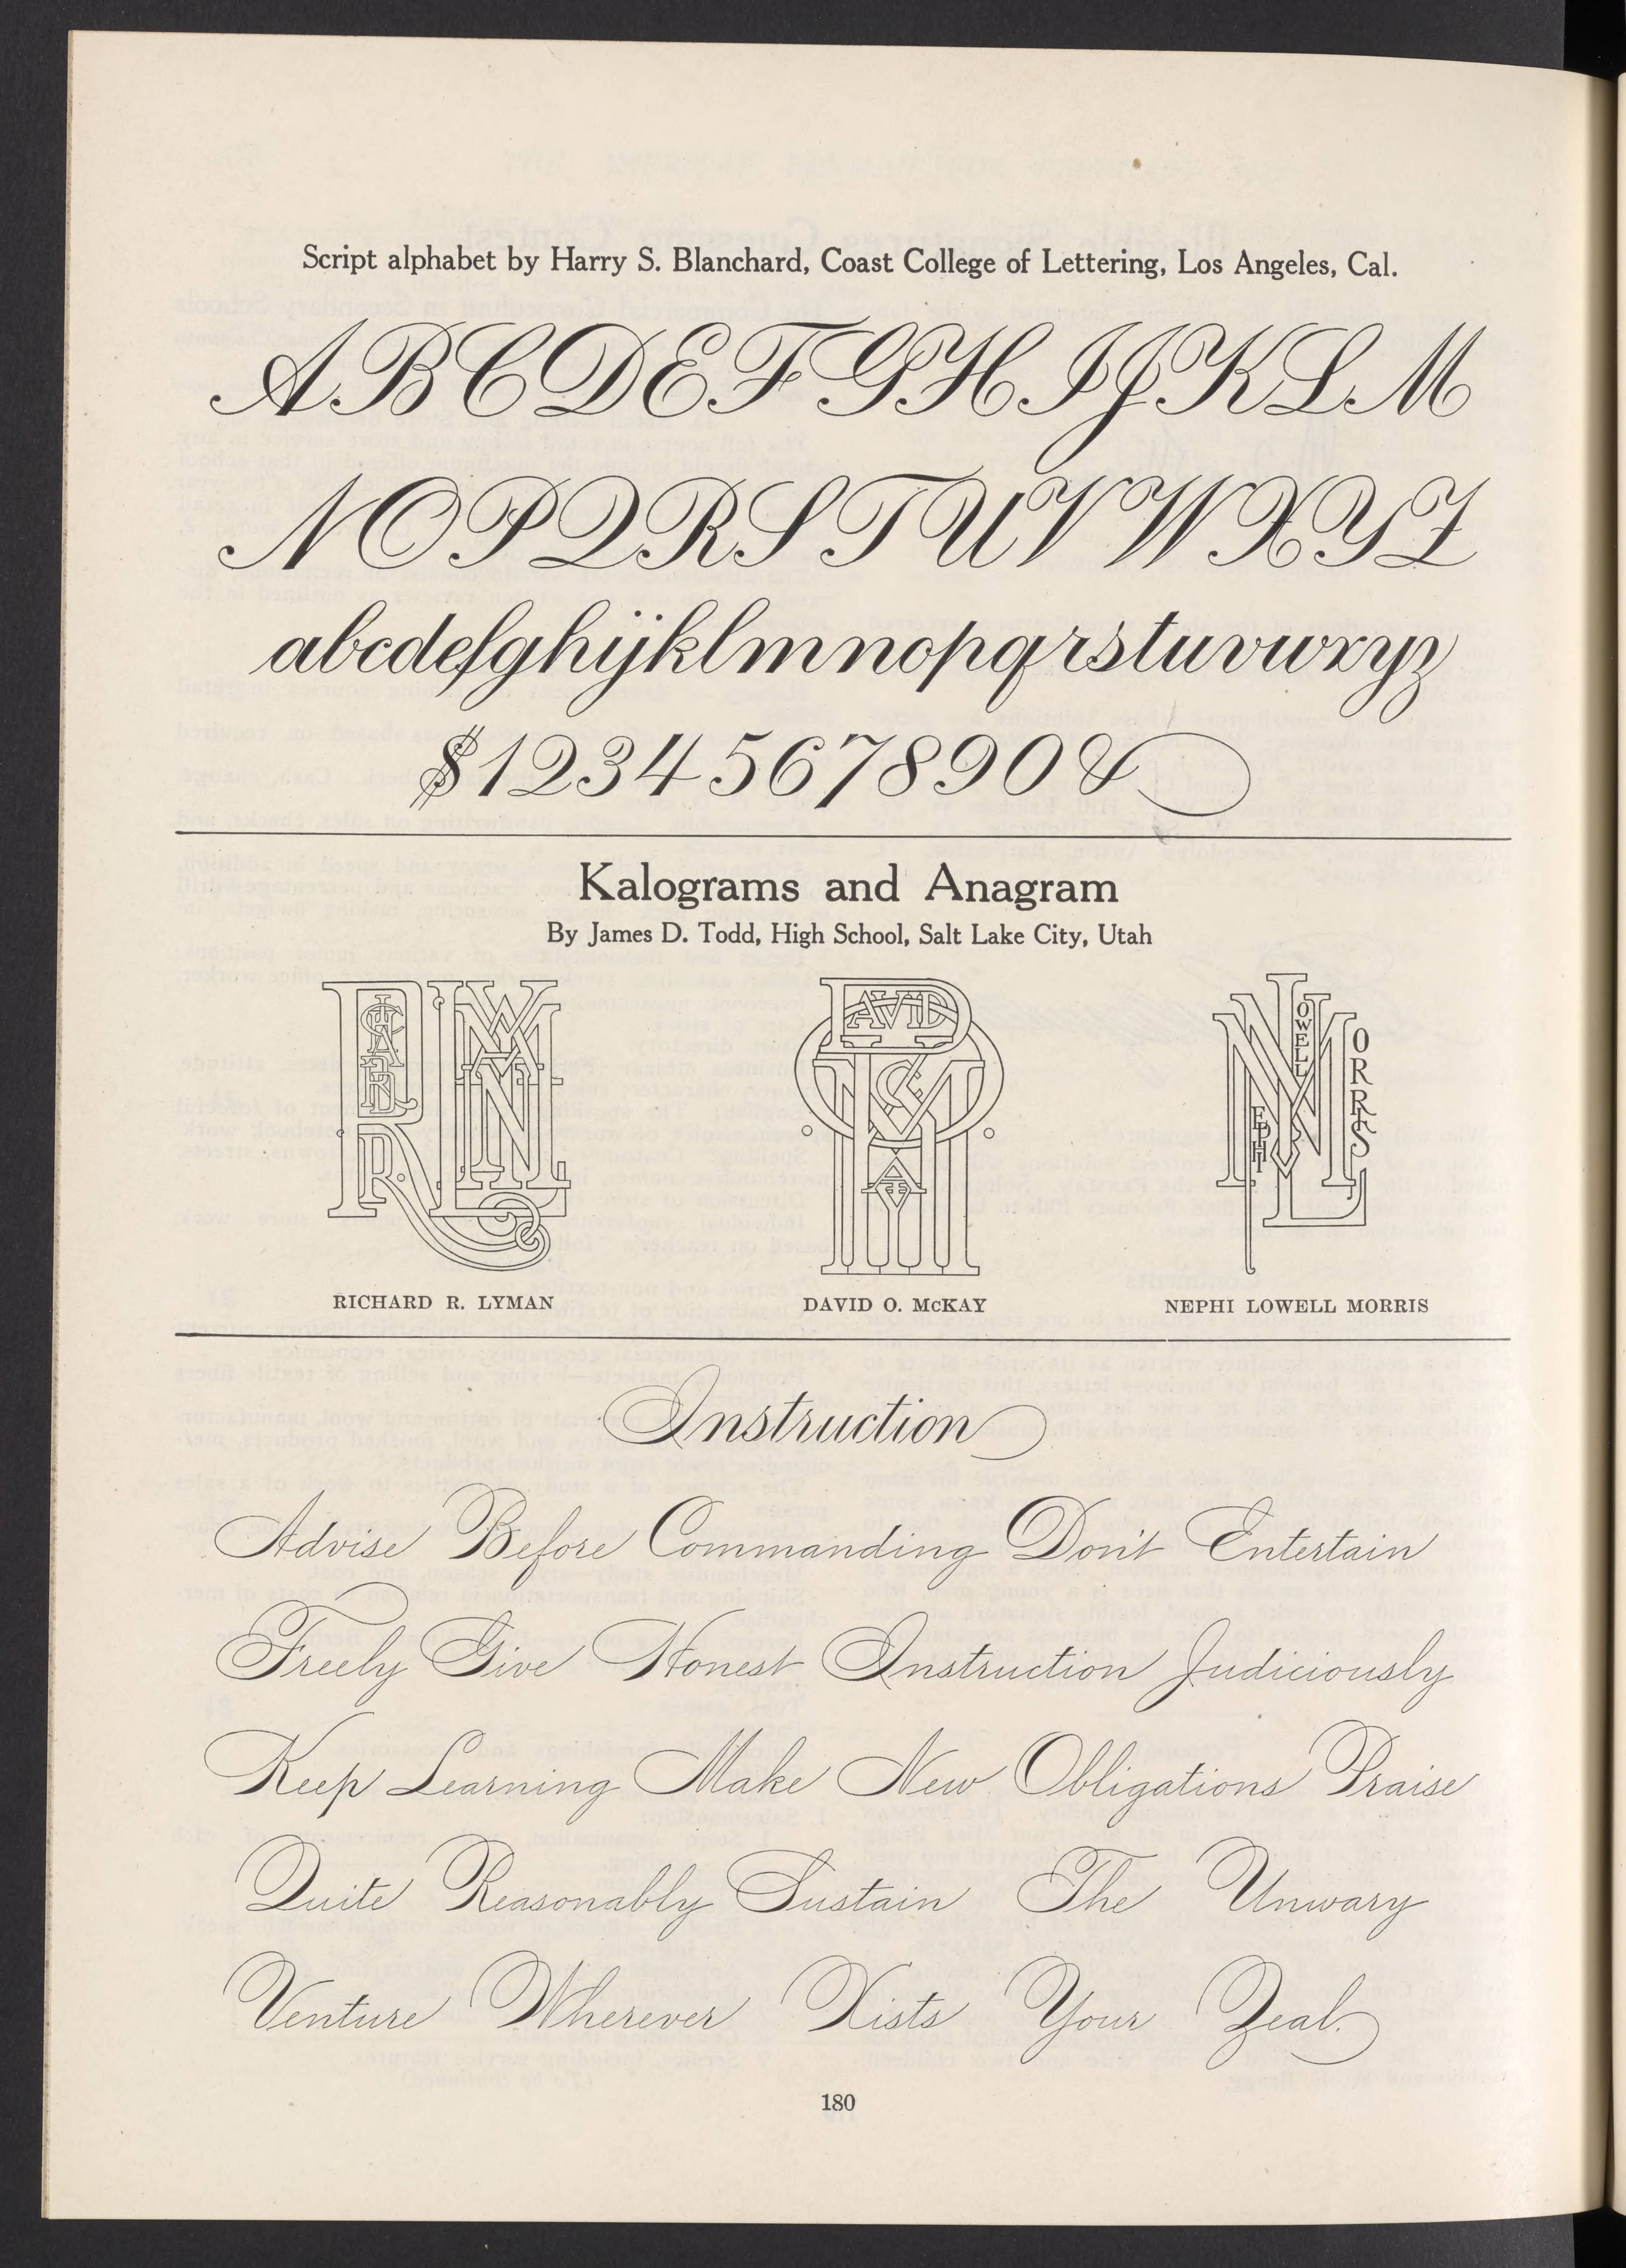 Script alphabet by Harry S. Blanchard, Coast College of Lettering, Los Angeles, Cal.
A B C D E F G H I J K L M
N O P Q R S T U V W X Y Z
a b c d e f g h i j k l m n o p q r s t u v w x y z
$ 1 2 3 4 5 6 7 8 9 0 &
Kalograms and Anagram
By James D. Todd, High School, Salt Lake City, Utah
RICHARD R. LYMAN
DAVID O. McKAY
NEPHI LOWELL MORRIS
Instruction
Advise Before Commanding Don't Entertain
Freely Give Honest Instruction Judiciously
Keep Learning Make New Obligations Praise
Quite Reasonably Sustain The Unwary
Venture Wherever Xists Your Zeal.
180